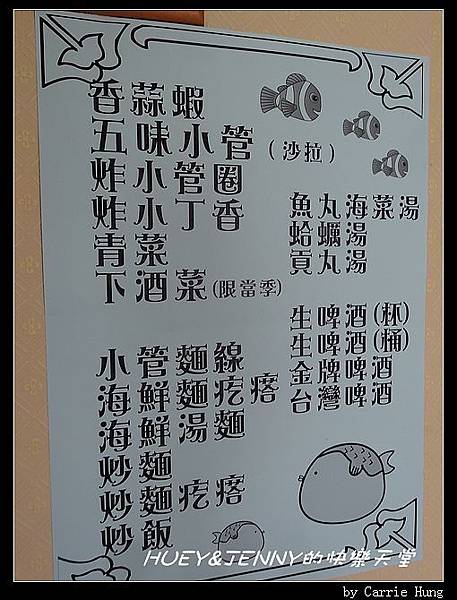 香蒜蝦
五味小管(沙拉)
炸小管圈
炸小丁香
青菜
下酒菜(限當季)
小管麵線
海鮮麵疙瘩
海鮮湯麵
炒麵
炒麵疙瘩
炒飯
魚丸海菜湯
蛤蠣湯
貢丸湯
生啤酒(杯)
生啤酒(桶)
金牌啤酒
台灣啤酒
HUEY&JENNY的快樂天堂
by Carrie Hung